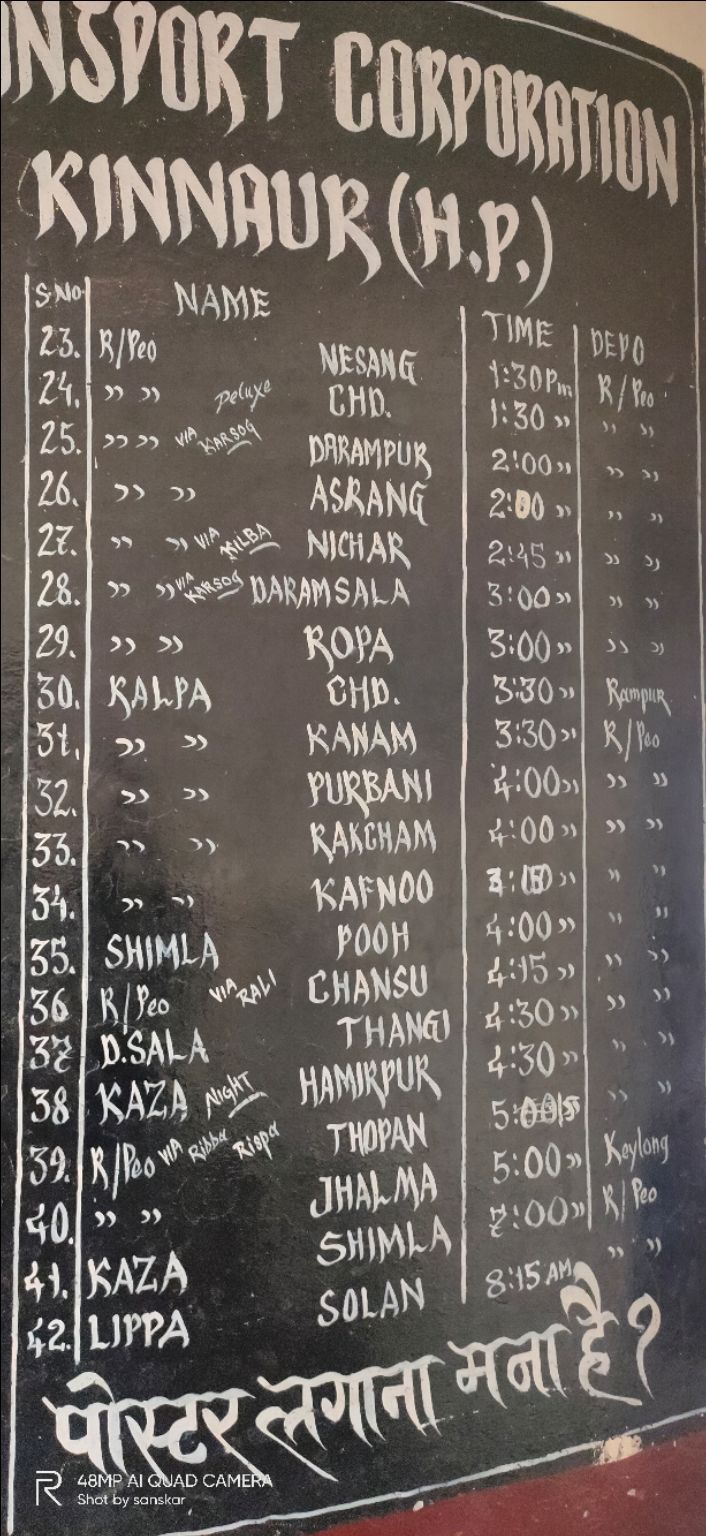 NSPORT CORPORATION
KINNAUR (H.P.)
S.No NAME TIME DEPO
23. R/Peo NESANG 1:30 Pm R/Peo
24. " " Deluxe CHD. 1:30 " " "
25. " " VIA KARSOG DARAMPUR 2:00 " " "
26. " " ASRANG 2:00 " " "
27. " " VIA KILBA NICHAR 2:45 " " "
28. " " VIA KARSOG DARAMSALA 3:00 " " "
29. " " ROPA 3:00 " " "
30. KALPA CHD. 3:30 " Rampur
31. " " KANAM 3:30 " R/Peo
32. " " PURBANI 4:00 " " "
33. " " RAKCHAM 4:00 " " "
34. " " KAFNOO " " "
35. SHIMLA POOH 4:00 " " "
36 R/Peo VIA RALI CHANSU 4:15 " " "
37 D.SALA THANGI 4:30 " " "
38 KAZA NIGHT HAMIRPUR 4:30 " " "
39. R/Peo VIA Ribba Rispa THOPAN " "
40. " " JHALMA 5:00 " Keylong
41. KAZA SHIMLA 7:00 " R/Peo
42. LIPPA SOLAN 8:15 AM " "
पोस्टर लगाना मना है ?
48MP AI QUAD CAMERA
Shot by sanskar